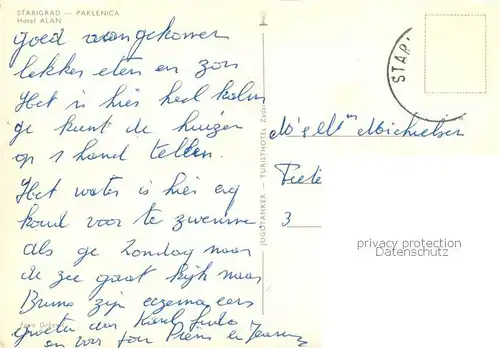 STARIGRAD — PAKLENICA
Hotel ALAN
goed aangekomen
lekker eten en zon
Het is hier heel kalm
ge kunt de huizen
op 1 hand tellen.
Het water is hier erg
koud voor te zwemmen
als ge Zondag naar
de zee gaat kijk naar
Bruno zijn eczema eens
groeten aan
en voor
Foto
JUGOTANKER — TURISTHOTEL Zadar
STAR.
Michielsen
3
privacy protection
Datenschutz